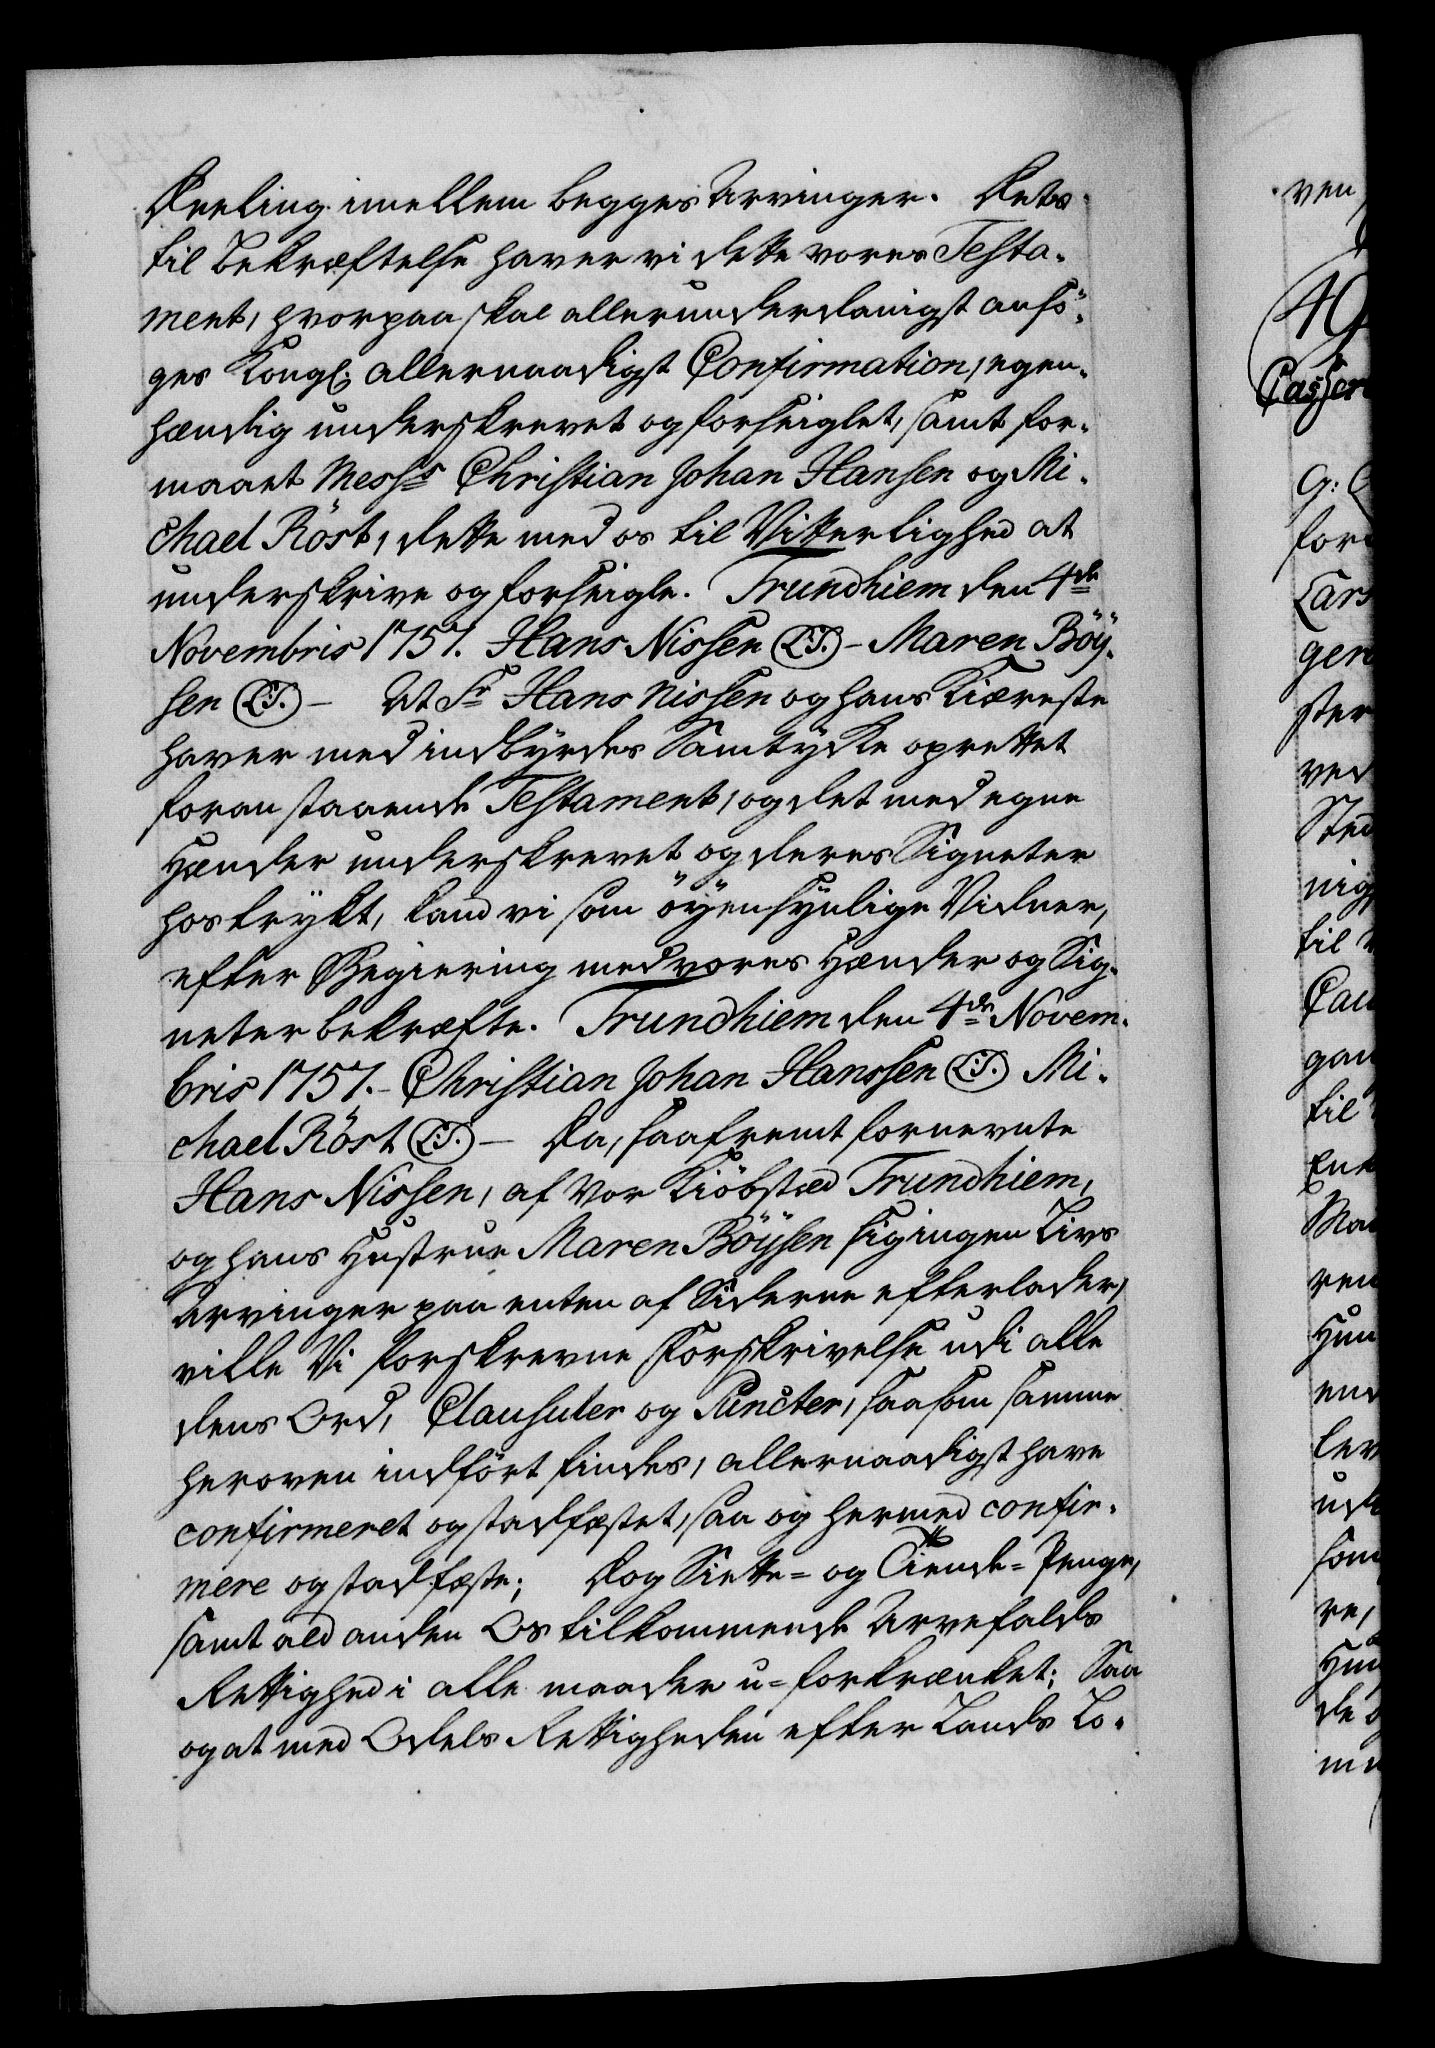 Deeling imellem begges Arvinger. Dets
til Bekræftelse haver vi dette vores Testa-
ment, hvorpaa skal allerunderdanigst ansö-
ges Kongl: allernaadigst Confirmation, egen-
hændig underskrevet og forseiglet, samt for-
maaet Messrs Christian Johan Hansen og Mi-
chael Röst, dette med os til Vitterlighed at
underskrive og forseigle. Trundhiem den 4de
Novembris 1757. Hans Nissen (L.S.) - Maren Böy-
sen (L.S.) - At Sr Hans Nissen og hans Kiæreste
haver med indbyrdes Samtycke oprettet
foranstaaende Testament, og det med egne
Hænder underskrevet og deres Signeter
hostrykt, kand vi som öyensynlige Vidner,
efter Begiering med vores Hænder og Sig-
neter bekræfte. Trundhiem den 4de Novem-
bris 1757. - Christian Johan Hanssen (L.S.) Mi-
chael Röst (L.S.) - Da, saafremt fornevnte
Hans Nissen, af Vor Kiöbstæd Trundhiem,
og hans Hustrue Maren Böysen sig ingen Livs
Arvinger paa enten af Siderne efterlader,
ville Vi forskrevne Forskrivelse udi alle
dens Ord, Clausuler og Puncter, saasom samme
heroven indfört findes, allernaadigst have
confirmeret og stadfæstet, saa og hermed confir-
mere og stadfæste; Dog Siette- og Tiende-Penge,
samt ald anden Os tilkommende Arvefalds
Rettighed i alle maader u-forkrænket; Saa
og at med Odels Rettigheden efter Lands Lo-
ven